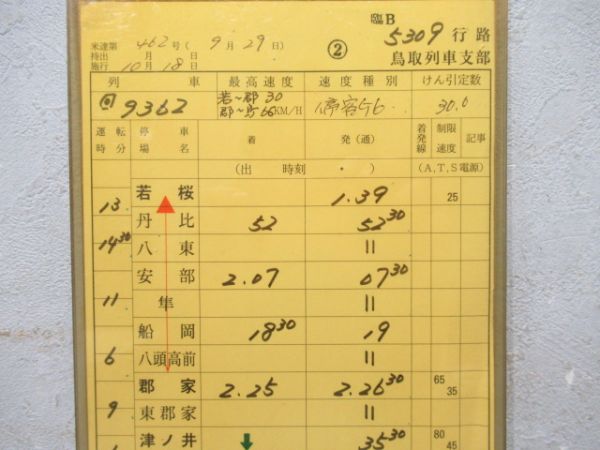 臨B
5309行路
米達第 462号(9月29日)
持出 月 日
施行 10月18日
②
鳥取列車支部
列 車 最高速度 速度種別 けん引定数
回9362 若~郡 30 停客 30.0
郡~鳥 66 KM/H
運転時分 停車場名 着 発(通) 着発線 制限速度 記事
(出 時刻 ・ ) (A,T,S電源)
若桜 1.39 25
13
丹比 52 52 30
14 30
八東 〃
安部 2.07 07 30
11
隼 〃
船岡 18 30 19
6
八頭高前 〃
郡家 2.25 2.26 30 65 35
9
東郡家 〃
津ノ井 35 30 80 45